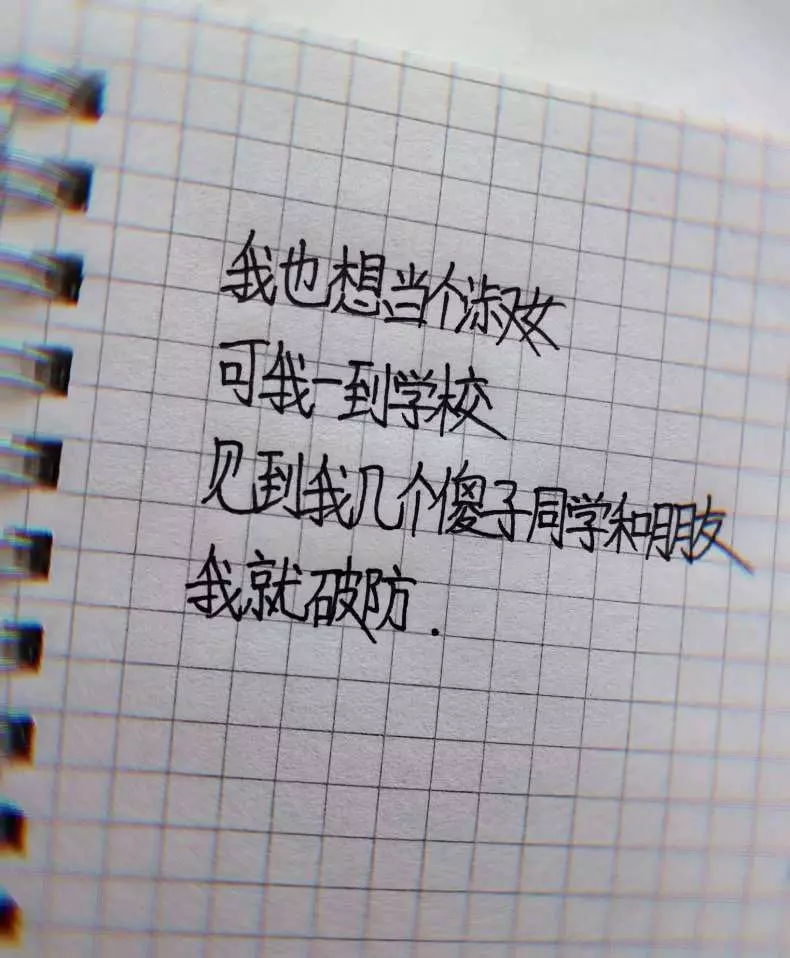 我也想当个淑女
可我一到学校
见到我几个傻子同学和朋友
我就破防.